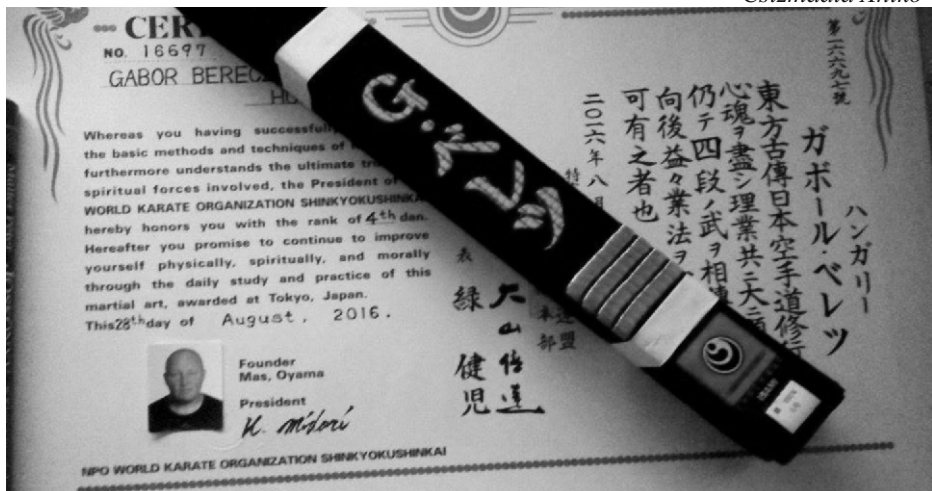 Csizmadia Anikó
CER
NO. 16697
GABOR BEREC
HU
Whereas you having successfully
the basic methods and techniques of
furthermore understands the ultimate
spiritual forces involved, the President of
WORLD KARATE ORGANIZATION SHINKYOKUSHINKA
hereby honors you with the rank of 4th dan.
Hereafter you promise to continue to improve
yourself physically, spiritually, and morally
through the daily study and practice of this
martial art, awarded at Tokyo, Japan.
This 28th day of August, 2016.
Founder
Mas, Oyama
President
K. Midori
NPO WORLD KARATE ORGANIZATION SHINKYOKUSHINKAI
第一六六九七號
ハンガリー
ガボール・ベレツ
東方古傳日本空手道修行
心魂ヲ盡シ理業共ニ大ニ
仍テ四段ノ武ヲ相傳
向後益々業法ヲ
可有之者也
二〇一六年八月
特
連盟
本部
表
大山倍達
緑健児